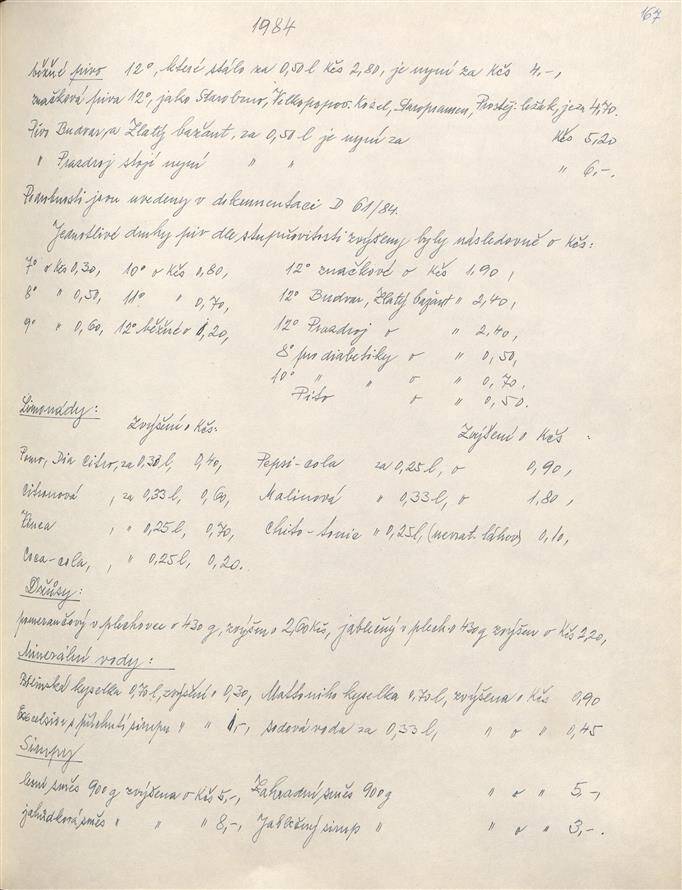 167
1984
běžné pivo 12°, které stálo za 0,50 l Kčs 2,80, je nyní za Kčs 4,-,
značková piva 12°, jako Starobrno, Velkopopov. Kozel, Staropramen, Prostěj. ležák, je za 4,70.
Pivo Budvar, a Zlatý bažant, za 0,50 l je nyní za Kčs 5,20
" Prazdroj stojí nyní " " " 6,-.
Podrobnosti jsou uvedeny v dokumentaci D 61/84.
Jednotlivé druhy piv dle stupňovitosti zvýšeny byly následovně o Kčs:
7° o Kčs 0,30, 10° o Kčs 0,80, 12° značkové o Kčs 1.90,
8° " 0,50, 11° " 0,70, 12° Budvar, Zlatý bažant " 2,40,
9° " 0,60, 12° běžné o 1,20, 12° Prazdroj o " 2,40,
8° pro diabetiky o " 0,50,
10° " " o " 0,70,
Pito o " 0,50.
Limonády:
Zvýšení o Kčs: Zvýšení o Kčs :
Pomo, Dia Citro, za 0,33 l, 0,40, Pepsi-cola za 0,25 l, o 0,90,
Citronová , za 0,33 l, 0,60, Malinová " 0,33 l, o 1,80,
, " 0,25 l, 0,70, Chito-tonic " 0,25 l, (nevrat. láhev) 0,10,
Coca-cola, , " 0,25 l, 0,20.
Džusy:
pomerančový v plechovce o 430 g, zvýšen o 2,60 Kčs, jablečný v plech. o 430 g zvýšen o Kčs 2,20,
Minerální vody:
Bílinská kyselka 0,70 l, zvýšení o 0,30, Mattoniho kyselka 0,70 l, zvýšena o Kčs 0,90
Excelsior s příchutí sirupu " " 1,-, sodová voda za 0,33 l, " o " 0,45
Sirupy
lesní směs 900 g zvýšena o Kčs 5,-, Zahradní směs 900 g " o " 5,-,
jahodková směs " " " 8,-, Jablečný sirup " " o " 3,-.